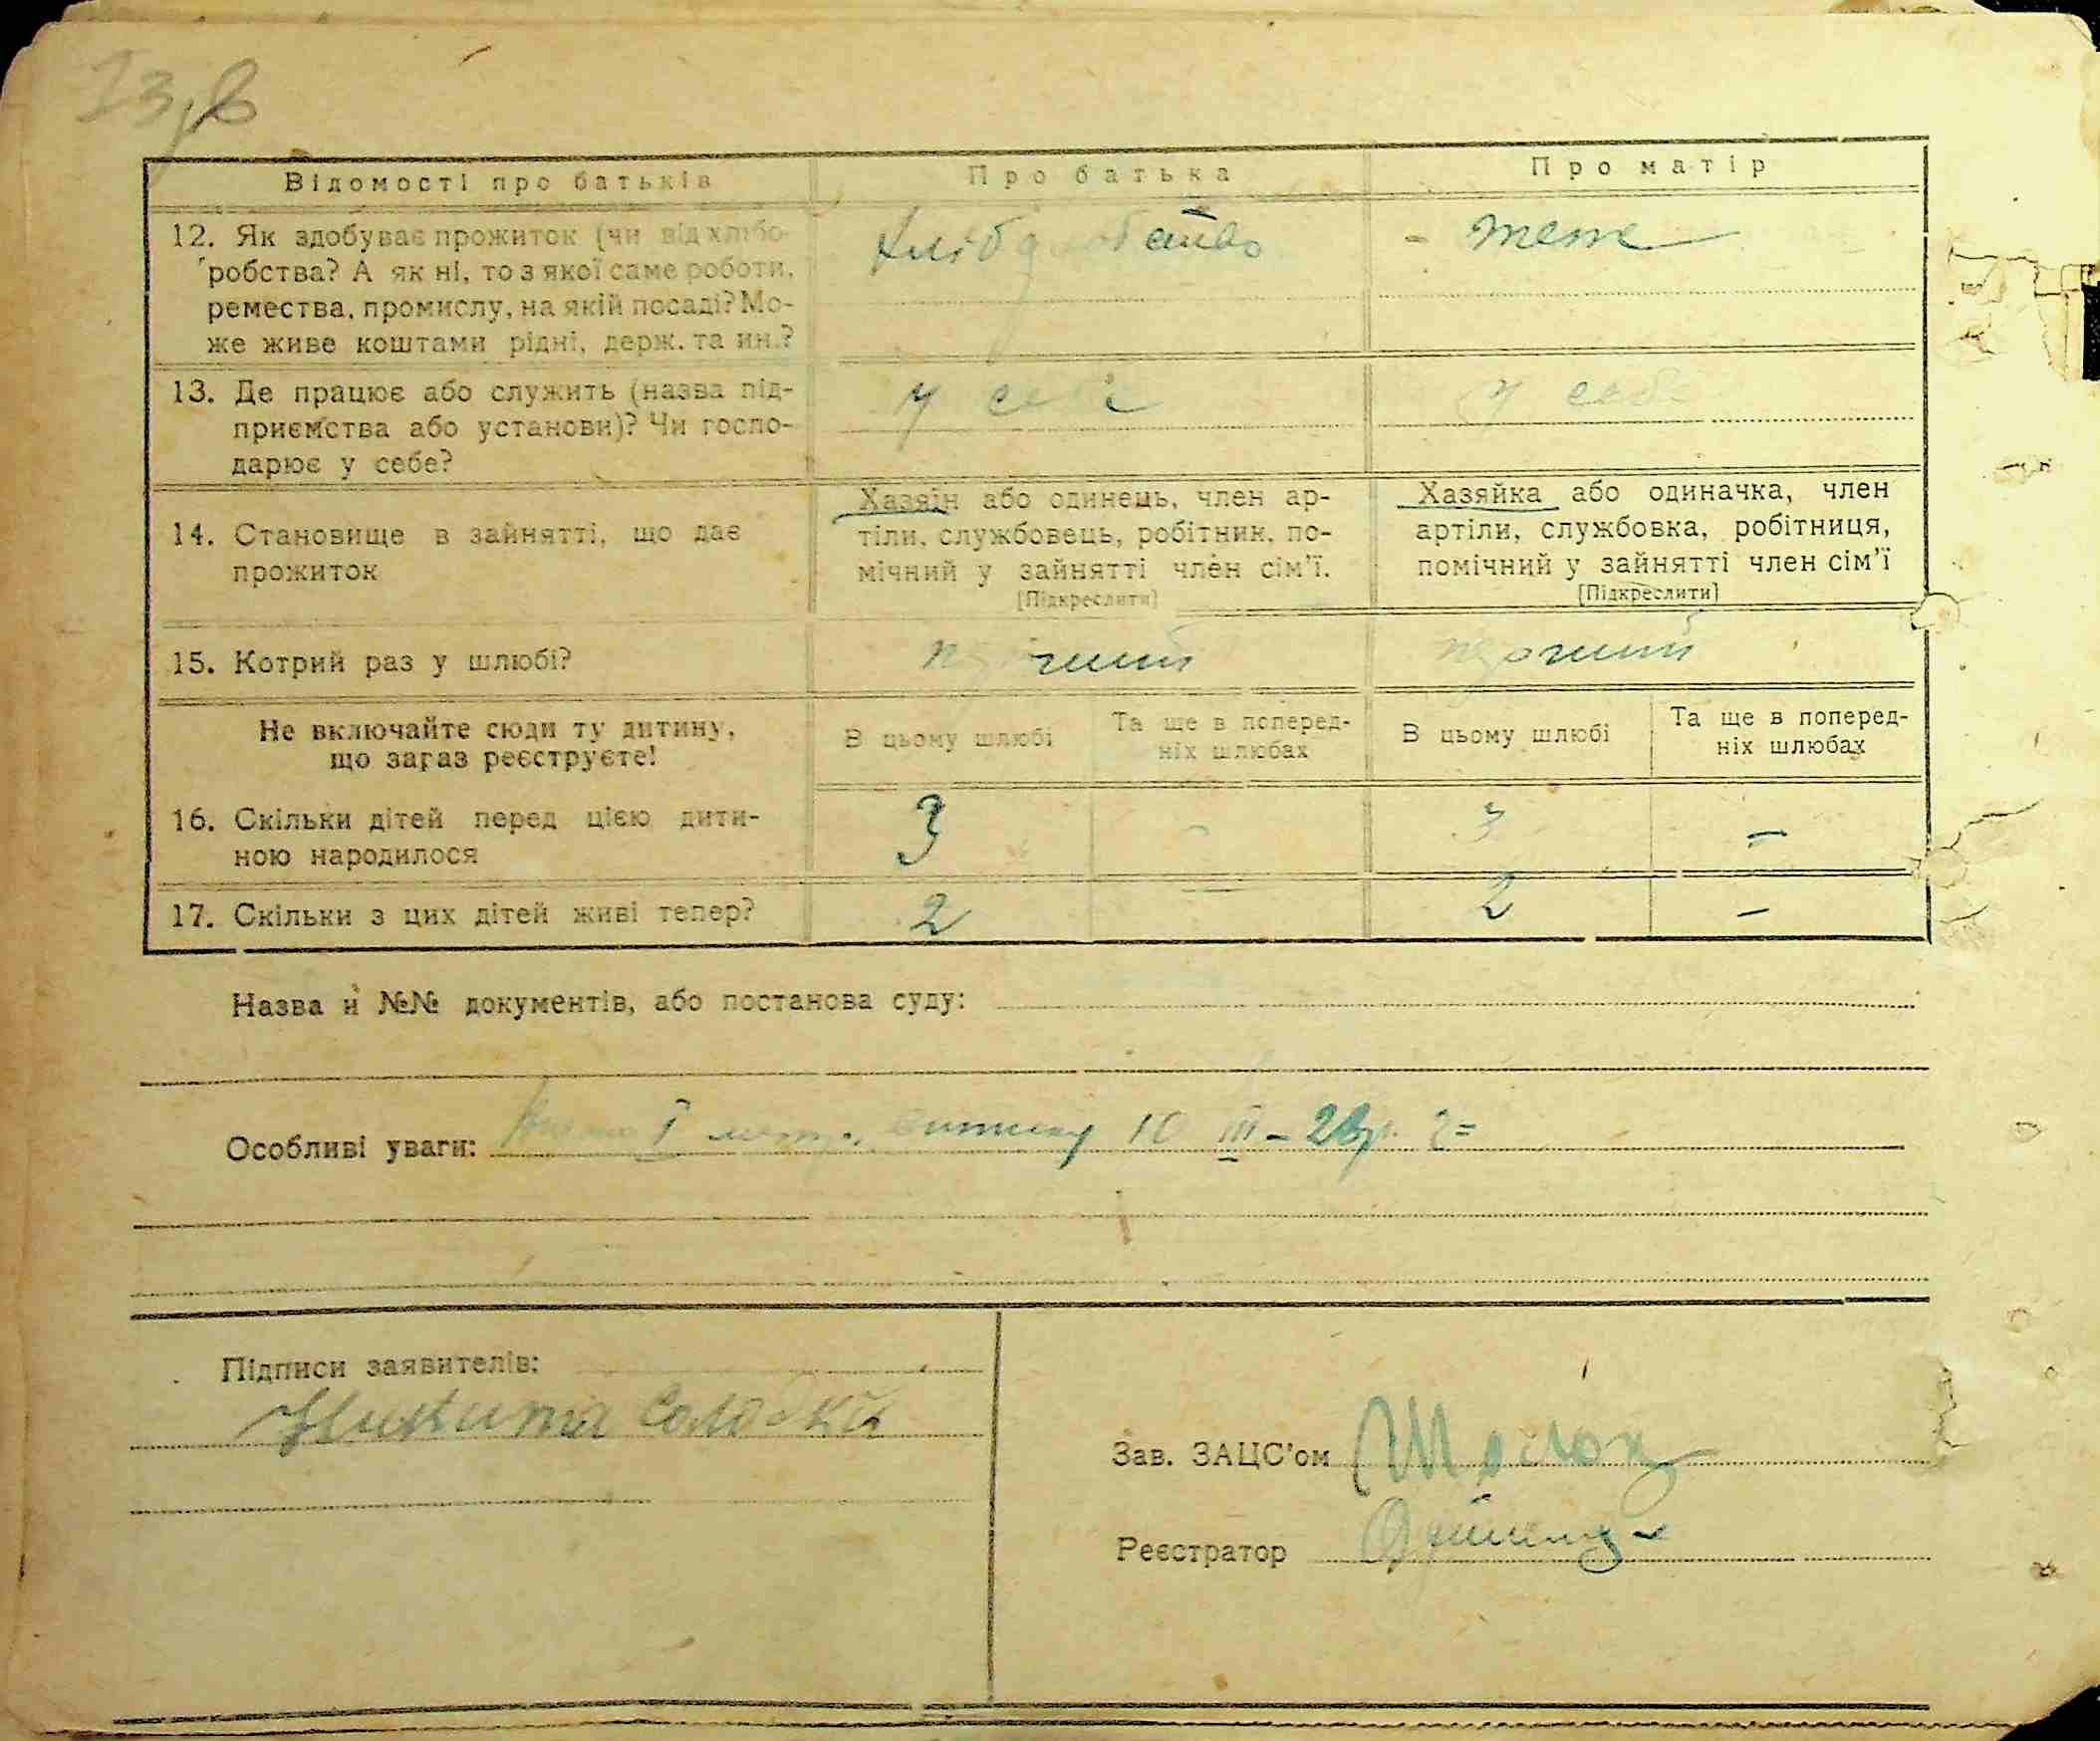 Відомості про батьків
Про батька
Про матір
12. Як здобуває прожиток (чи від хлібо-
робства? А як ні, то з якої саме роботи,
ремества, промислу, на якій посаді? Мо-
же живе коштами рідні, держ. та ин.?
теж
13. Де працює або служить (назва під-
приємства або установи)? Чи госпо-
дарює у себе?
у себе
у себе
14. Становище в зайнятті, що дає
прожиток
Хазяїн або одинець, член ар-
тіли, службовець, робітник, по-
мічний у зайнятті член сім'ї.
[Підкреслити]
Хазяйка або одиначка, член
артіли, службовка, робітниця,
помічний у зайнятті член сім'ї
[Підкреслити]
15. Котрий раз у шлюбі?
Не включайте сюди ту дитину,
що зараз реєструєте!
В цьому шлюбі
Та ще в поперед-
ніх шлюбах
В цьому шлюбі
Та ще в поперед-
ніх шлюбах
16. Скільки дітей перед цією дити-
ною народилося
3
-
3
-
17. Скільки з цих дітей живі тепер?
2
2
-
Назва й №№ документів, або постанова суду:
Особливі уваги: I 10 III - 28р.
Підписи заявителів:
Никита
Зав. ЗАЦС'ом
Реєстратор